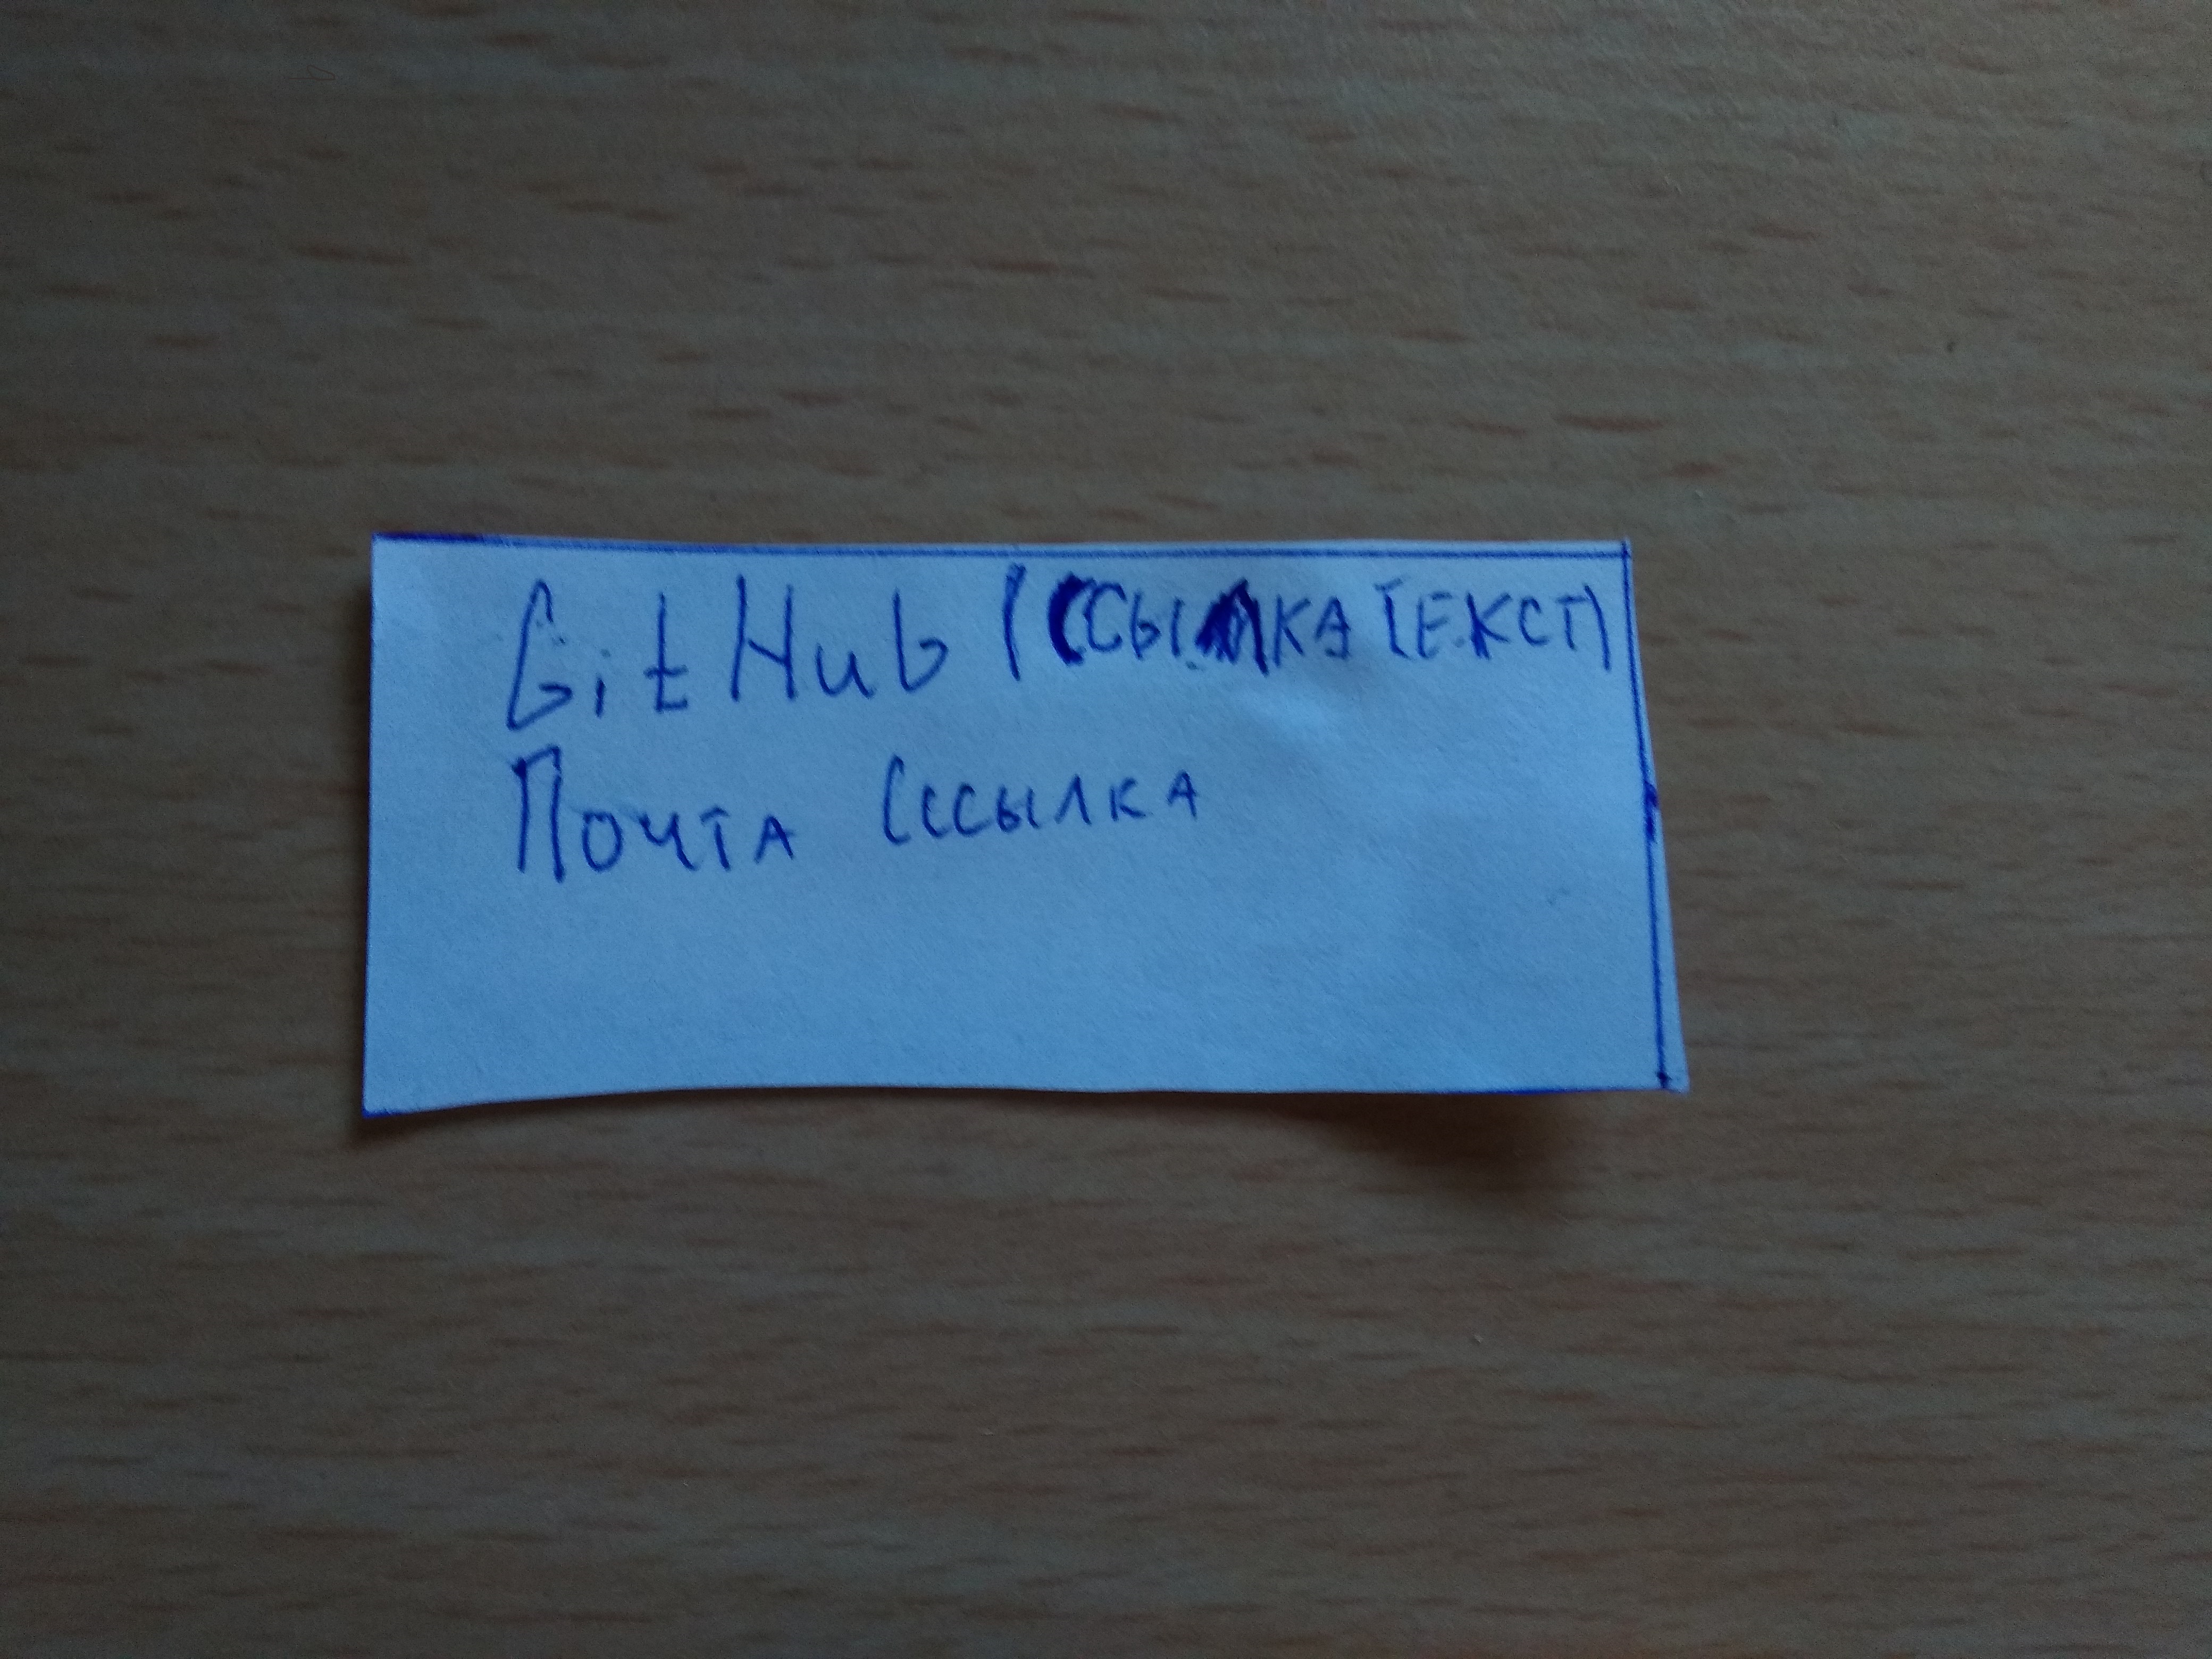 GitHub (ссылка текст)
Почта (ссылка